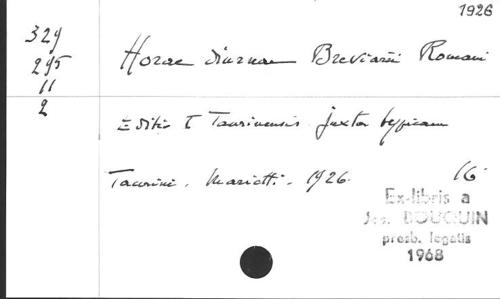 1926
329
295
11
2
Horae diurnae Breviarii Romani
Editio I Taurinensis juxta typicam
Taurini. Marietti. 1926. 16
Ex-libris a
Jos. BOUQUIN
presb. legatis
1968